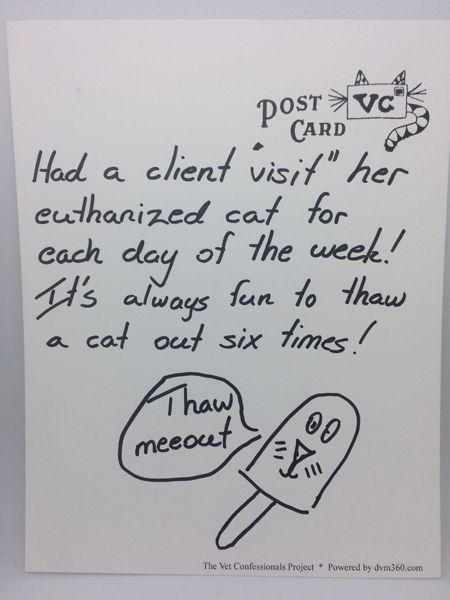 POST
CARD
VC
Had a client "visit" her
euthanized cat for
each day of the week!
It's always fun to thaw
a cat out six times!
Thaw
meeout
The Vet Confessionals Project * Powered by dvm360.com